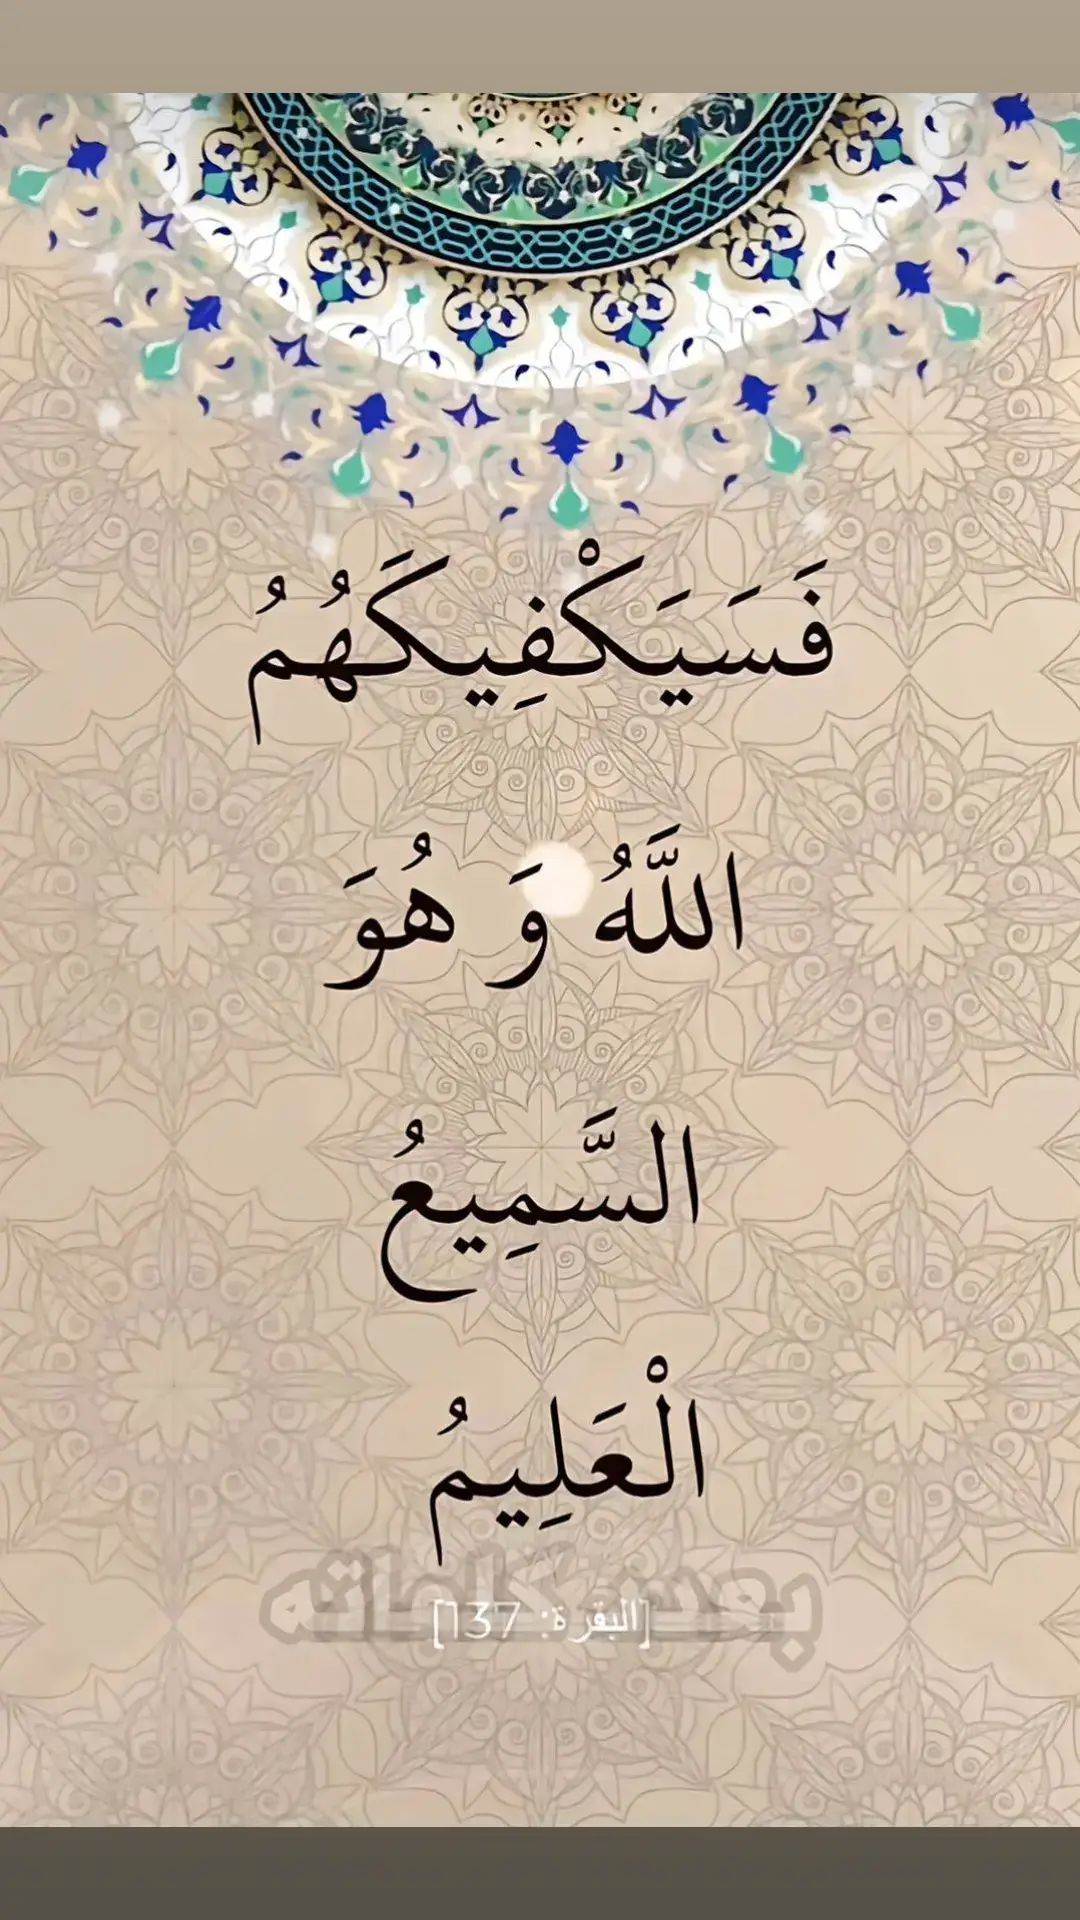 فَسَيَكْفِيكَهُمُ
اللَّهُ وَ هُوَ
السَّمِيعُ
الْعَلِيمُ
[البقرة: 137]